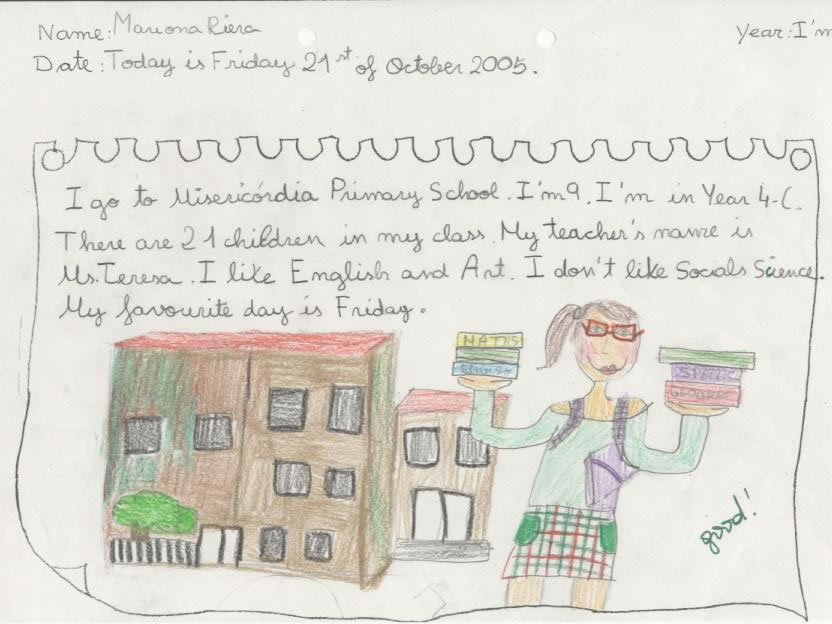 Name: Mariona Riera
Year: I'm
Date: Today is Friday 21st of October 2005.
I go to Misericórdia Primary School. I'm 9. I'm in Year 4-C.
There are 21 children in my class. My teacher's name is
Ms. Teresa. I like English and Art. I don't like Socials Science.
My favourite day is Friday.
MATHS
ENGLISH
good!